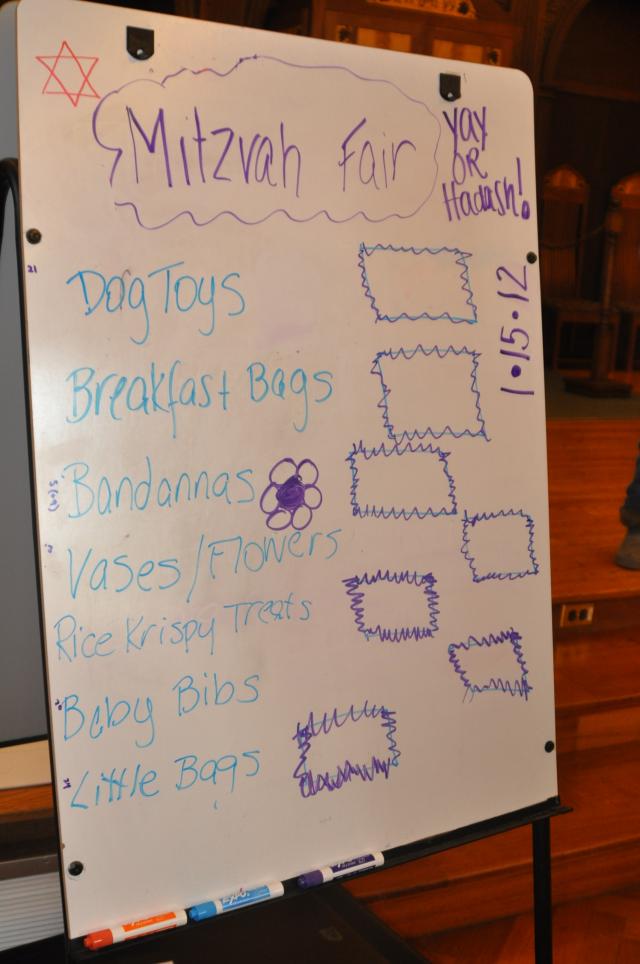 Mitzvah Fair
YAY
OR
Hadash!
1•15•12
21
Dog Toys
Breakfast Bags
Bandannas
Vases/Flowers
Rice Krispy Treats
Baby Bibs
Little Bags
EXPO